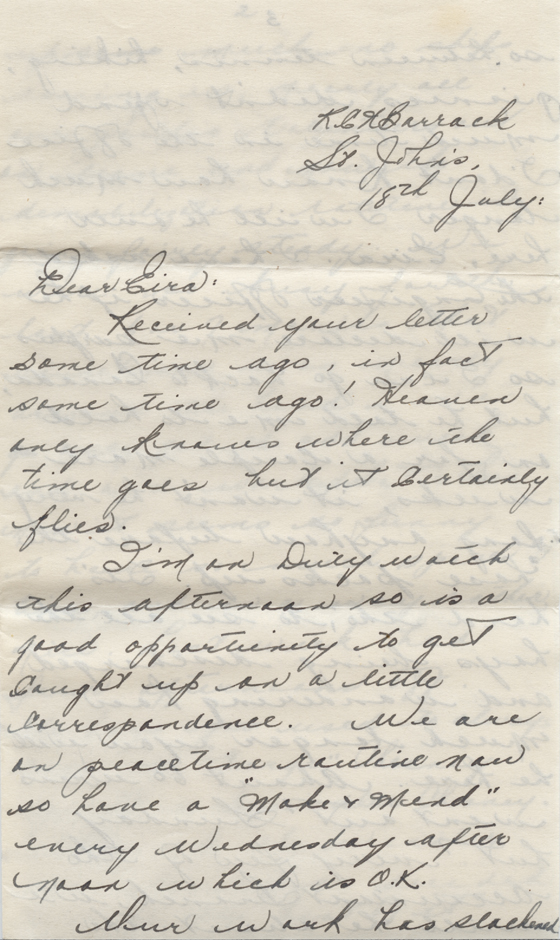 R.C.N Barrack
St. John's,
18th July:
Dear Eira:
Received your letter
some time ago, in fact
some time ago! Heaven
only knows where the
time goes but it certainly
flies.
I'm on Duty watch
this afternoon so is a
good opportunity to get
caught up on a little
correspondence. We are
on peacetime routine now
so have a "Make & Mend"
every Wednesday after
noon which is O.K.
work has slackened